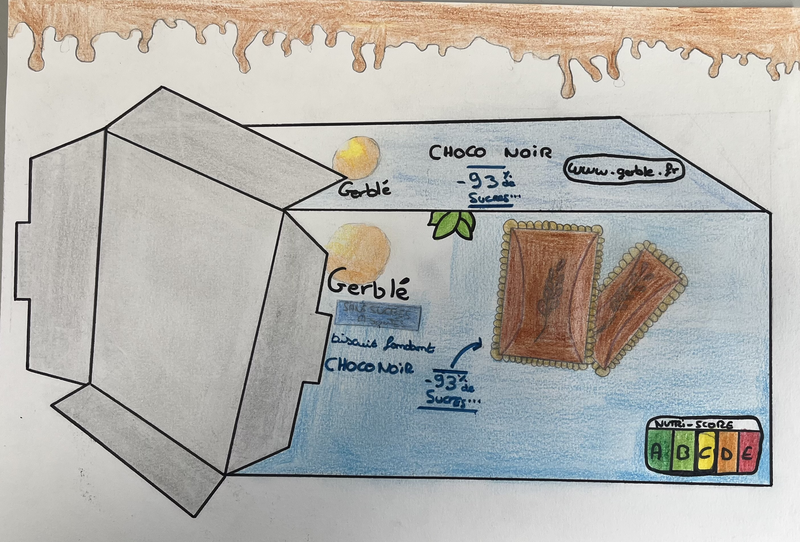 CHOCO NOIR
-93% de
SUCRES...
www.gerblé.fr
Gerblé
Gerblé
SANS SUCRES
biscuit fondant
CHOCO NOIR
-93% de
SUCRES...
NUTRI-SCORE
A B C D E